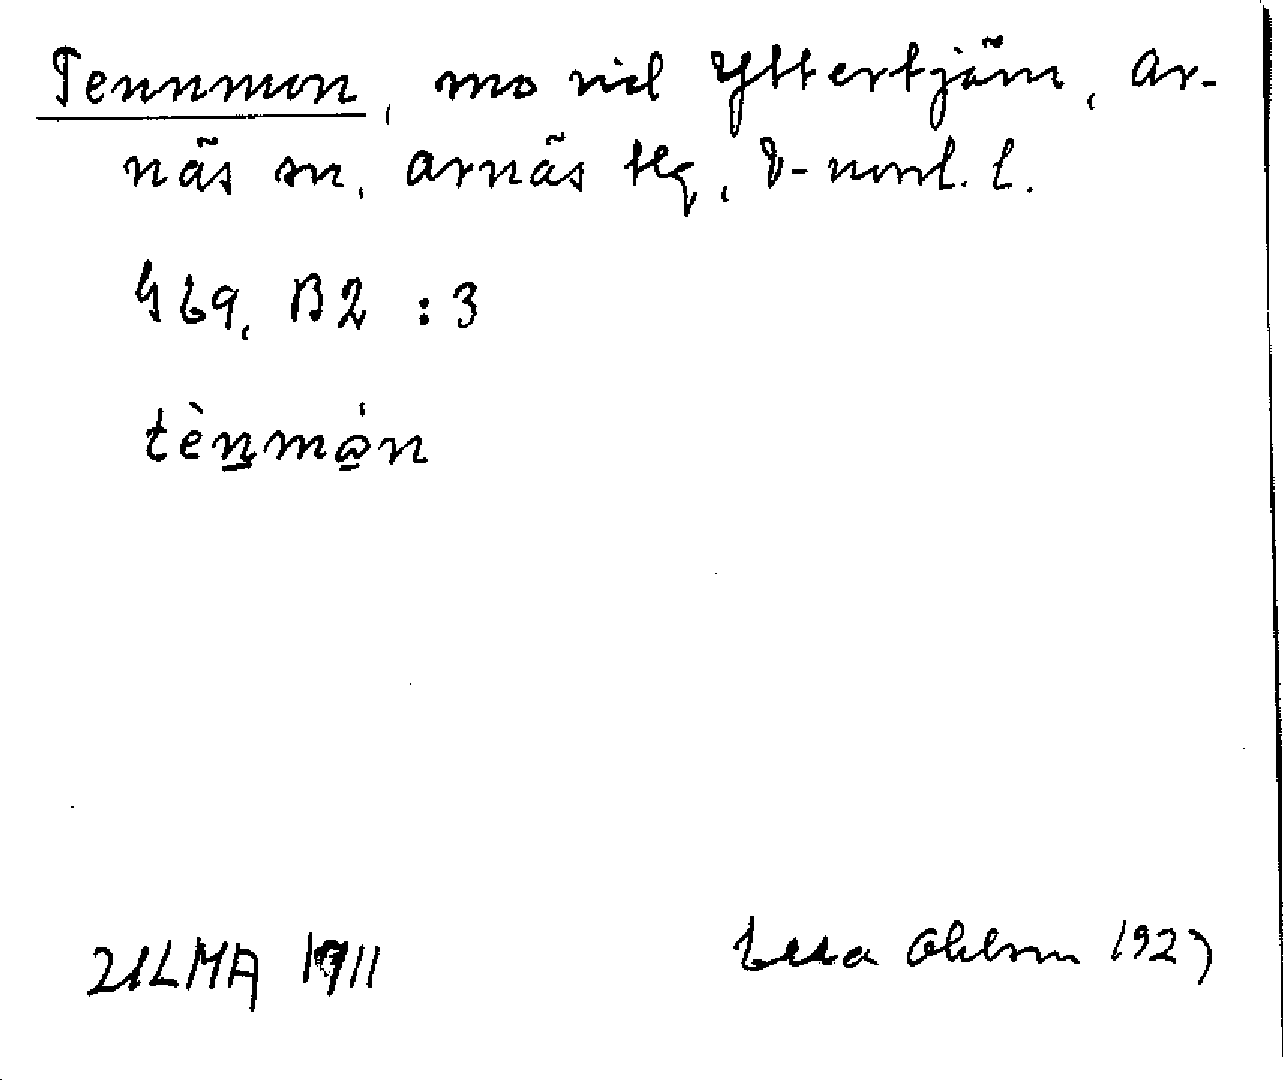 Tennmon, mo vid Yttertjäm, Ar-
näs sn, Arnäs tlg, V-norrl. l.
469, B2 : 3
tènmón
ULMA 1911
Ohlson 1927